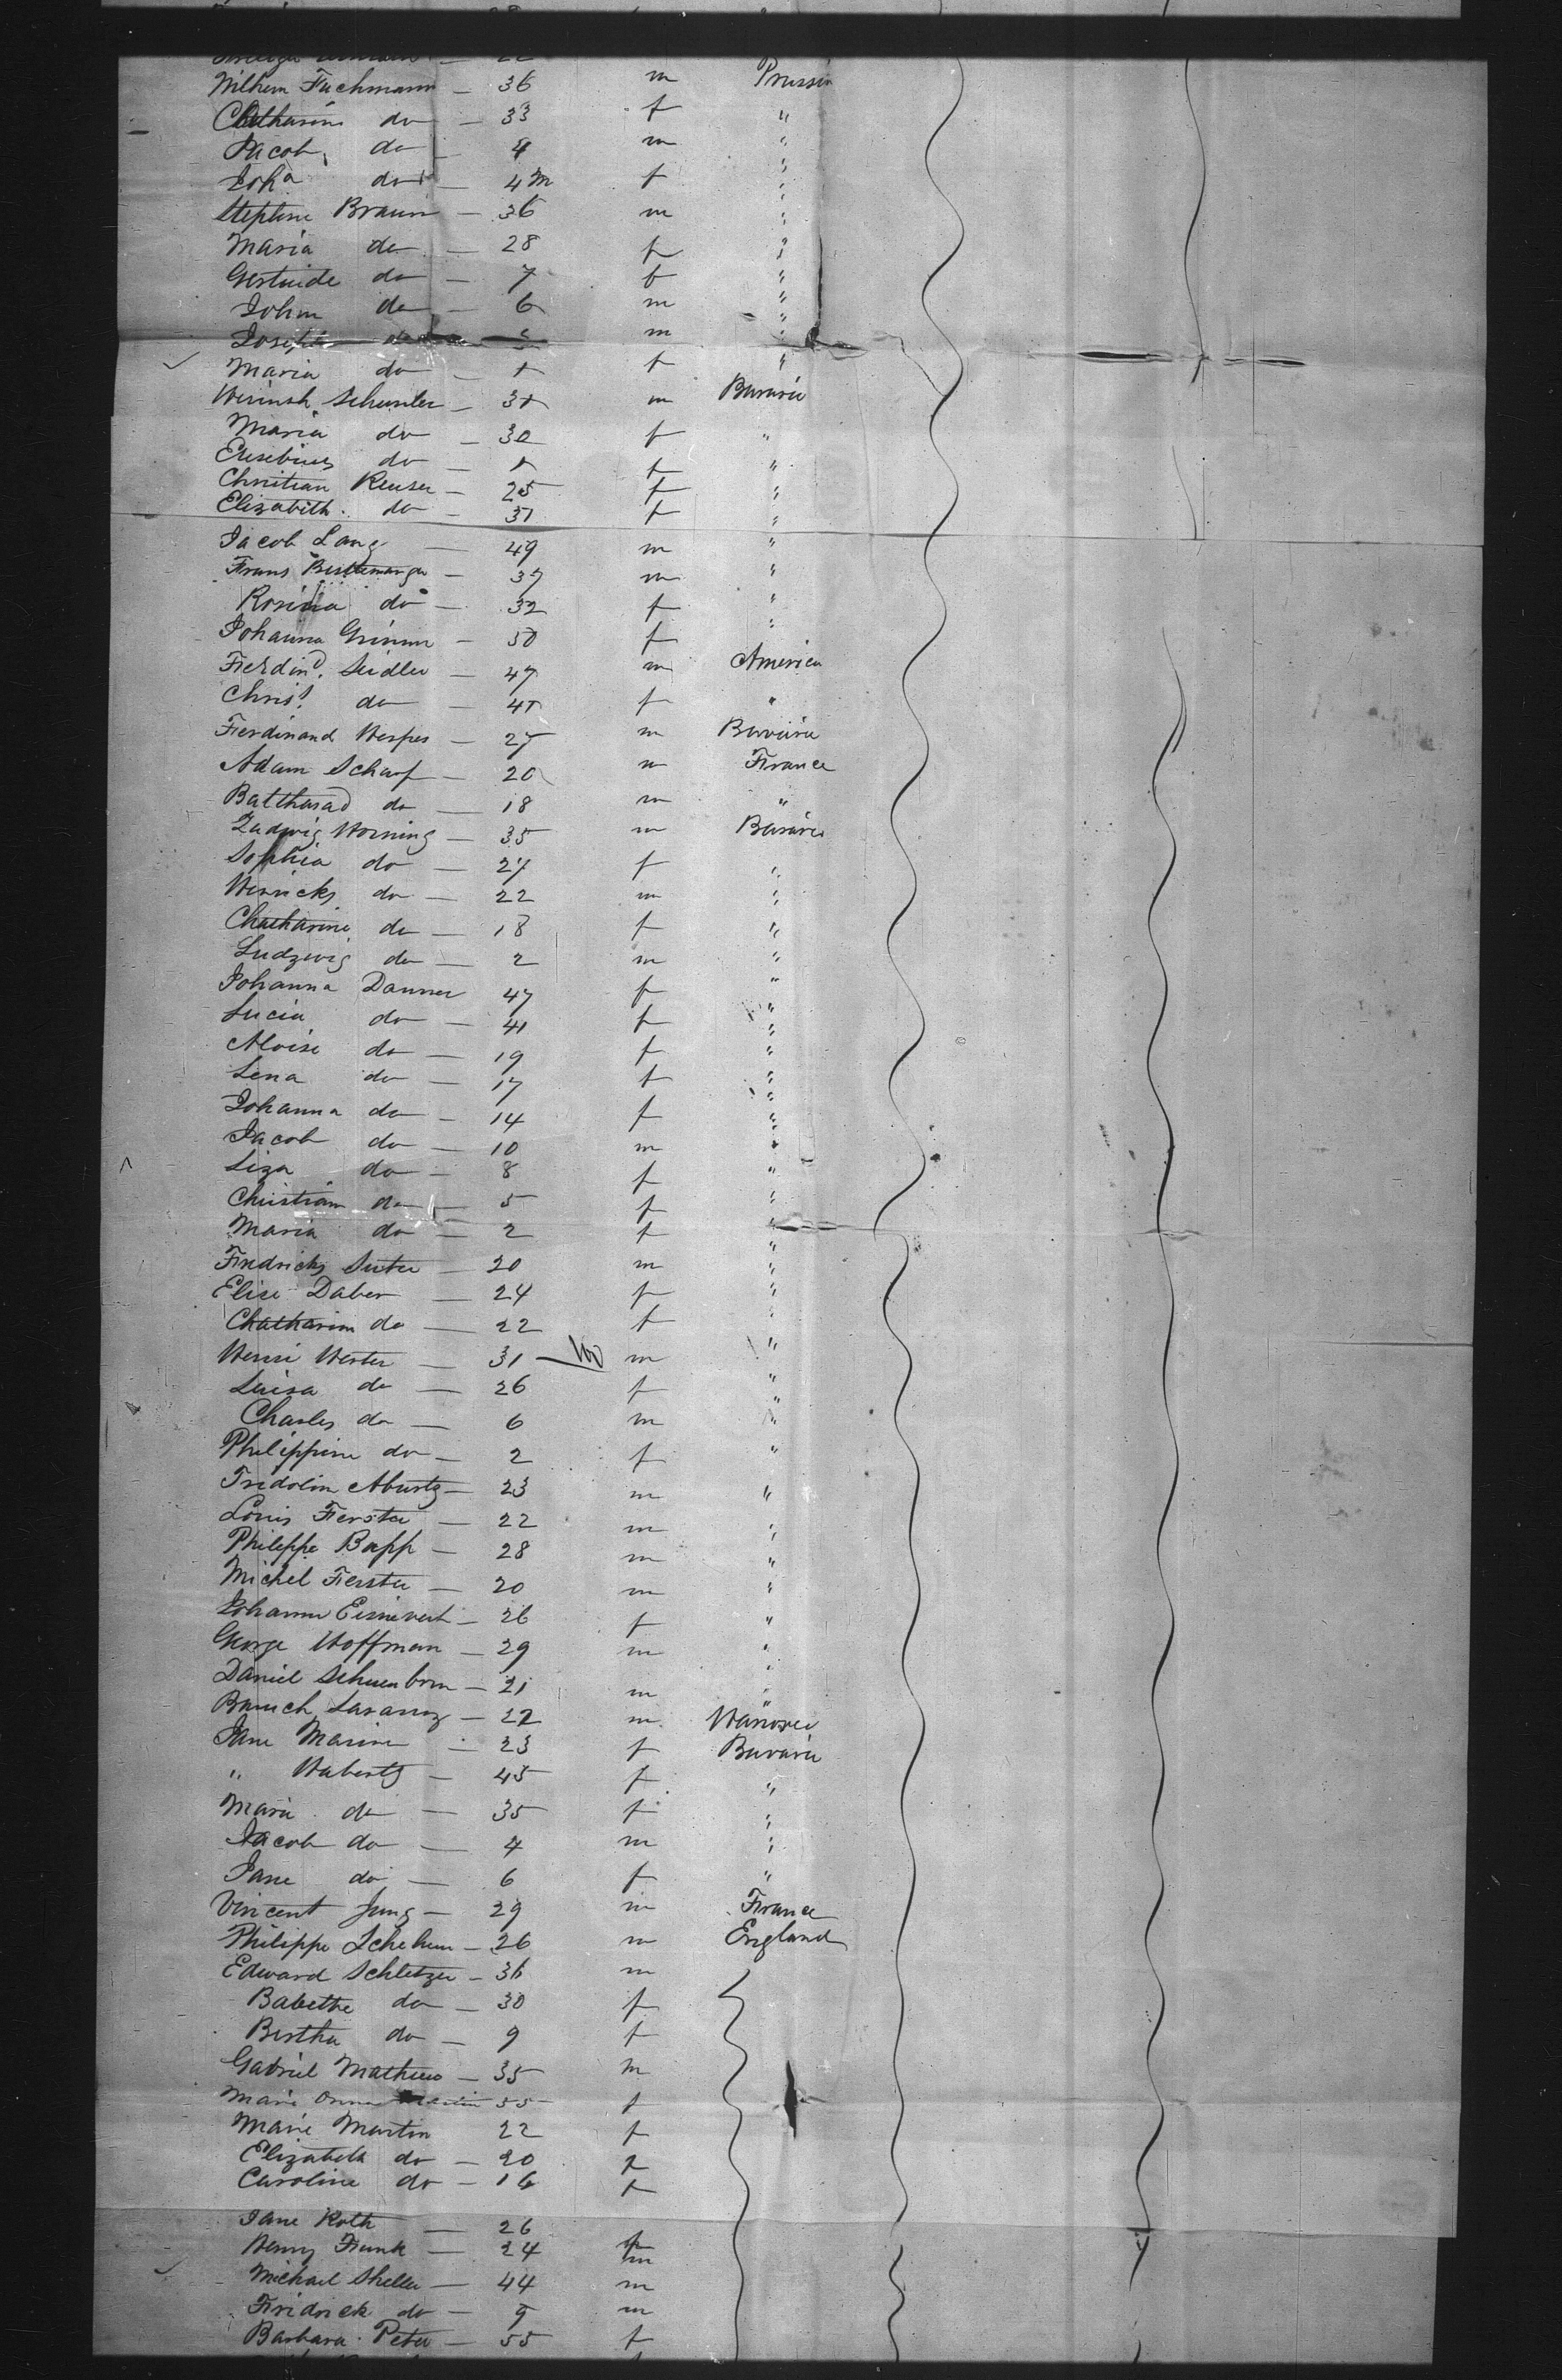 Wilhem Fuchmann — 36 m Prussia
Chatharine do — 33 f "
Jacob do — 4 m "
do — 4 m f "
Stephne Braun — 36 m "
Maria do — 28 f "
Gertruide do — 7 f "
John do — 6 m "
Joseph do m "
Maria do — f "
m Bavaria
Maria do — 30 f "
Eusebius do — f "
Christian Reuser — 25 f "
Elizabith do — 31 f "
Jacob Lang — 49 m "
Frans — 37 m "
Rosina do — 32 f "
Johanna Grimm — 30 f "
Ferdind. Seidler — 47 m America
Christ. do — 41 f "
Ferdinand Hespes — 27 m Bavaria
Adam Scharf — 20 m France
Balthasad do — 18 m "
Ludwig Horning — 35 m Bavaria
Sophia do — 27 f "
Henricks do — 22 m "
Chatharine do — 18 f "
Ludzwig do — 2 m "
Johanna Danner 47 f "
Lucia do — 41 f "
Aloise do — 19 f "
Lena do — 17 f "
Johanna do — 14 f "
Jacob do — 10 m "
Liza do — 8 f "
Christian do — 5 f "
Maria do — 2 f "
Fredricks Suter — 20 m "
Elise Daber — 24 f "
Chatharina do — 22 f "
Henri Herter — 31 — 100 m "
Luisa do — 26 f "
Charles do — 6 m "
Philippine do — 2 f "
Fridolin Aburtz — 23 m "
Louis Ferster — 22 m "
Philippe Bapp — 28 m "
Michel Ferster — 20 m "
Johanna — 26 f "
George Hoffman — 29 m "
Daniel Schuenborn — 21 m "
Baruch — 22 m Hanover
Jane Marine — 23 f Bavaria
" Habertz — 45 f "
Maria do — 35 f "
Jacob do — 4 m "
Jane do — 6 f "
Vincent Jung — 29 m France
Philippe — 26 m England
Edward Schletzer — 36 m
Babethe do — 30 f
Bertha do — 9 f
Gabriel Mathieu — 35 m
Marie 55 f
Marie Martin 22 f
Elizabeth do — 20 f
Caroline do — 16 f
Jane Roth — 26 f
Henry Frunk — 24 m
Michael Sheller — 44 m
Fridrick do — 9 m
Barbara Peter — 55 f